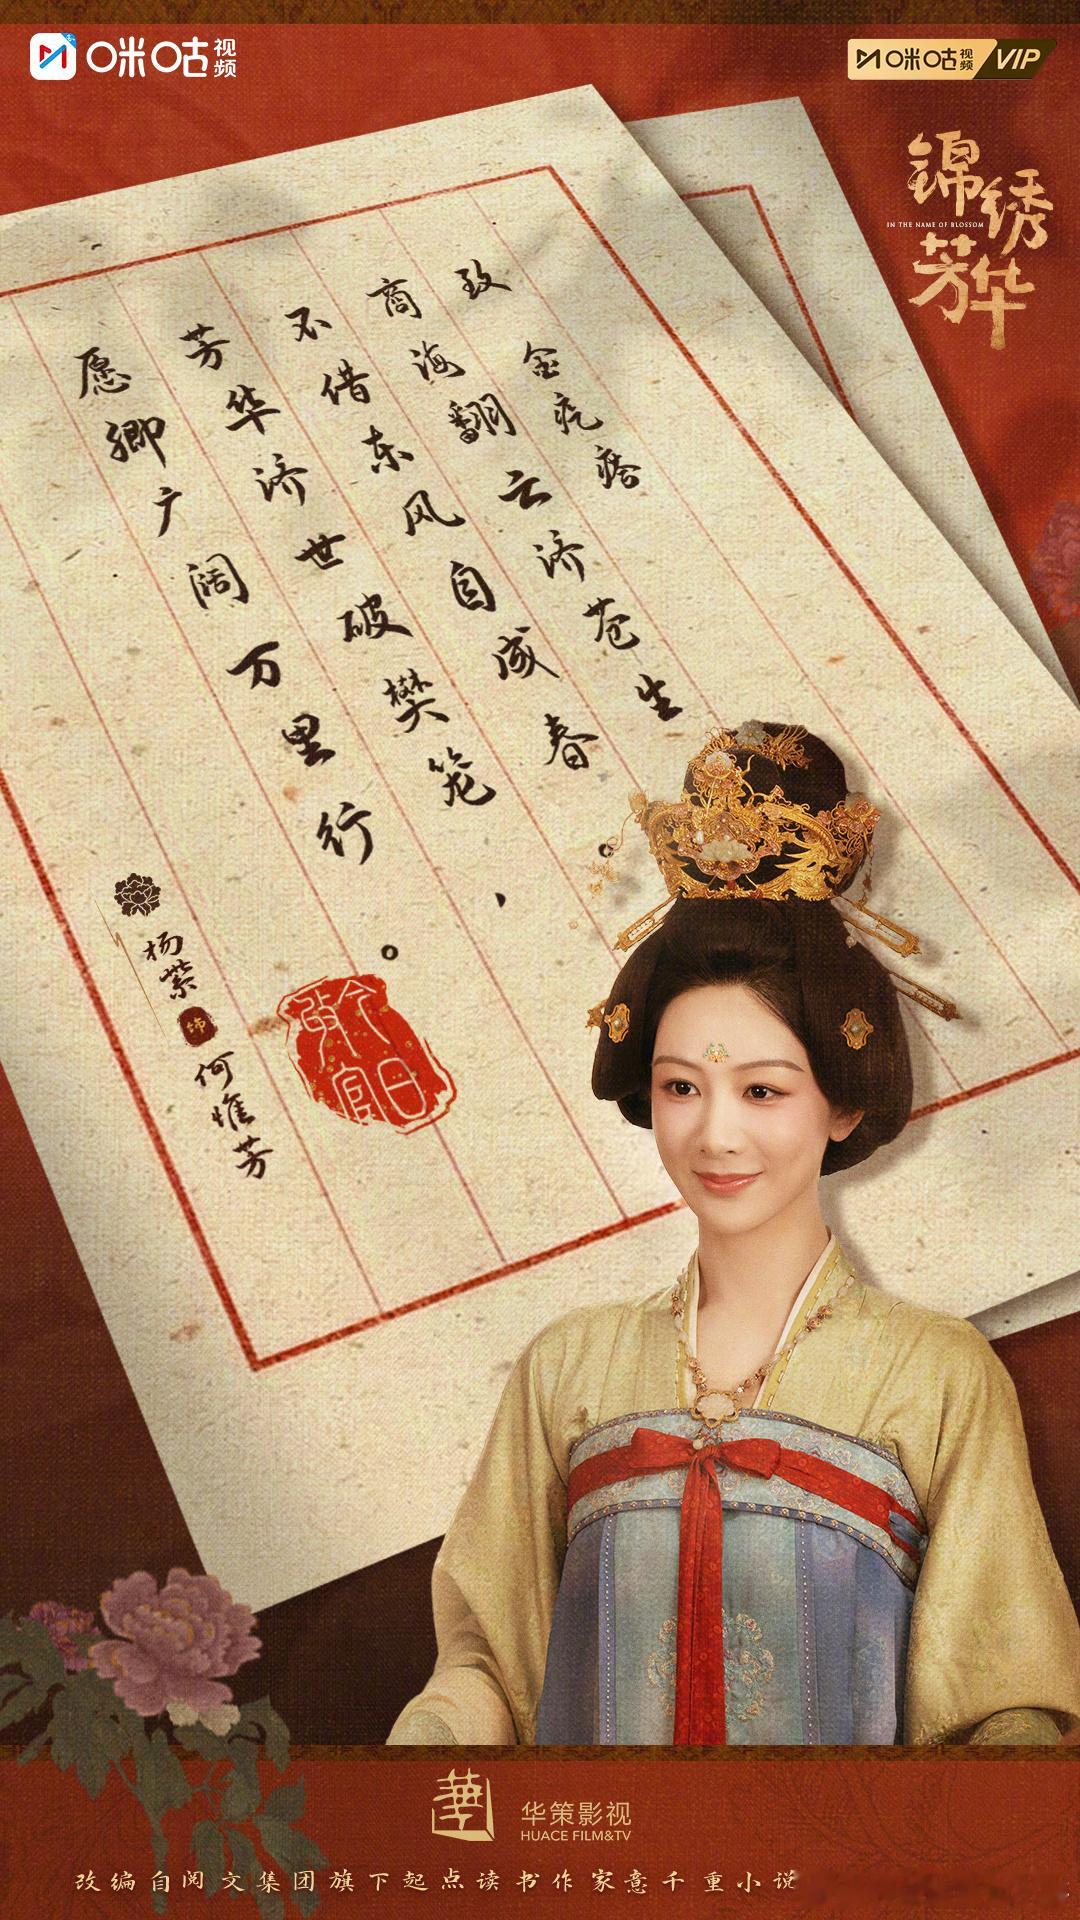 咪咕视频
咪咕视频 VIP
锦绣芳华
IN THE NAME OF BLOSSOM
致
金疙瘩
商海翻云济苍生
不借东风自成春。
芳华济世破樊笼、
愿卿广阔万里行。
杨紫
饰
何惟芳
今日
啟官
華
华策影视
HUACE FILM&TV
改编自阅文集团旗下起点读书作家意千重小说